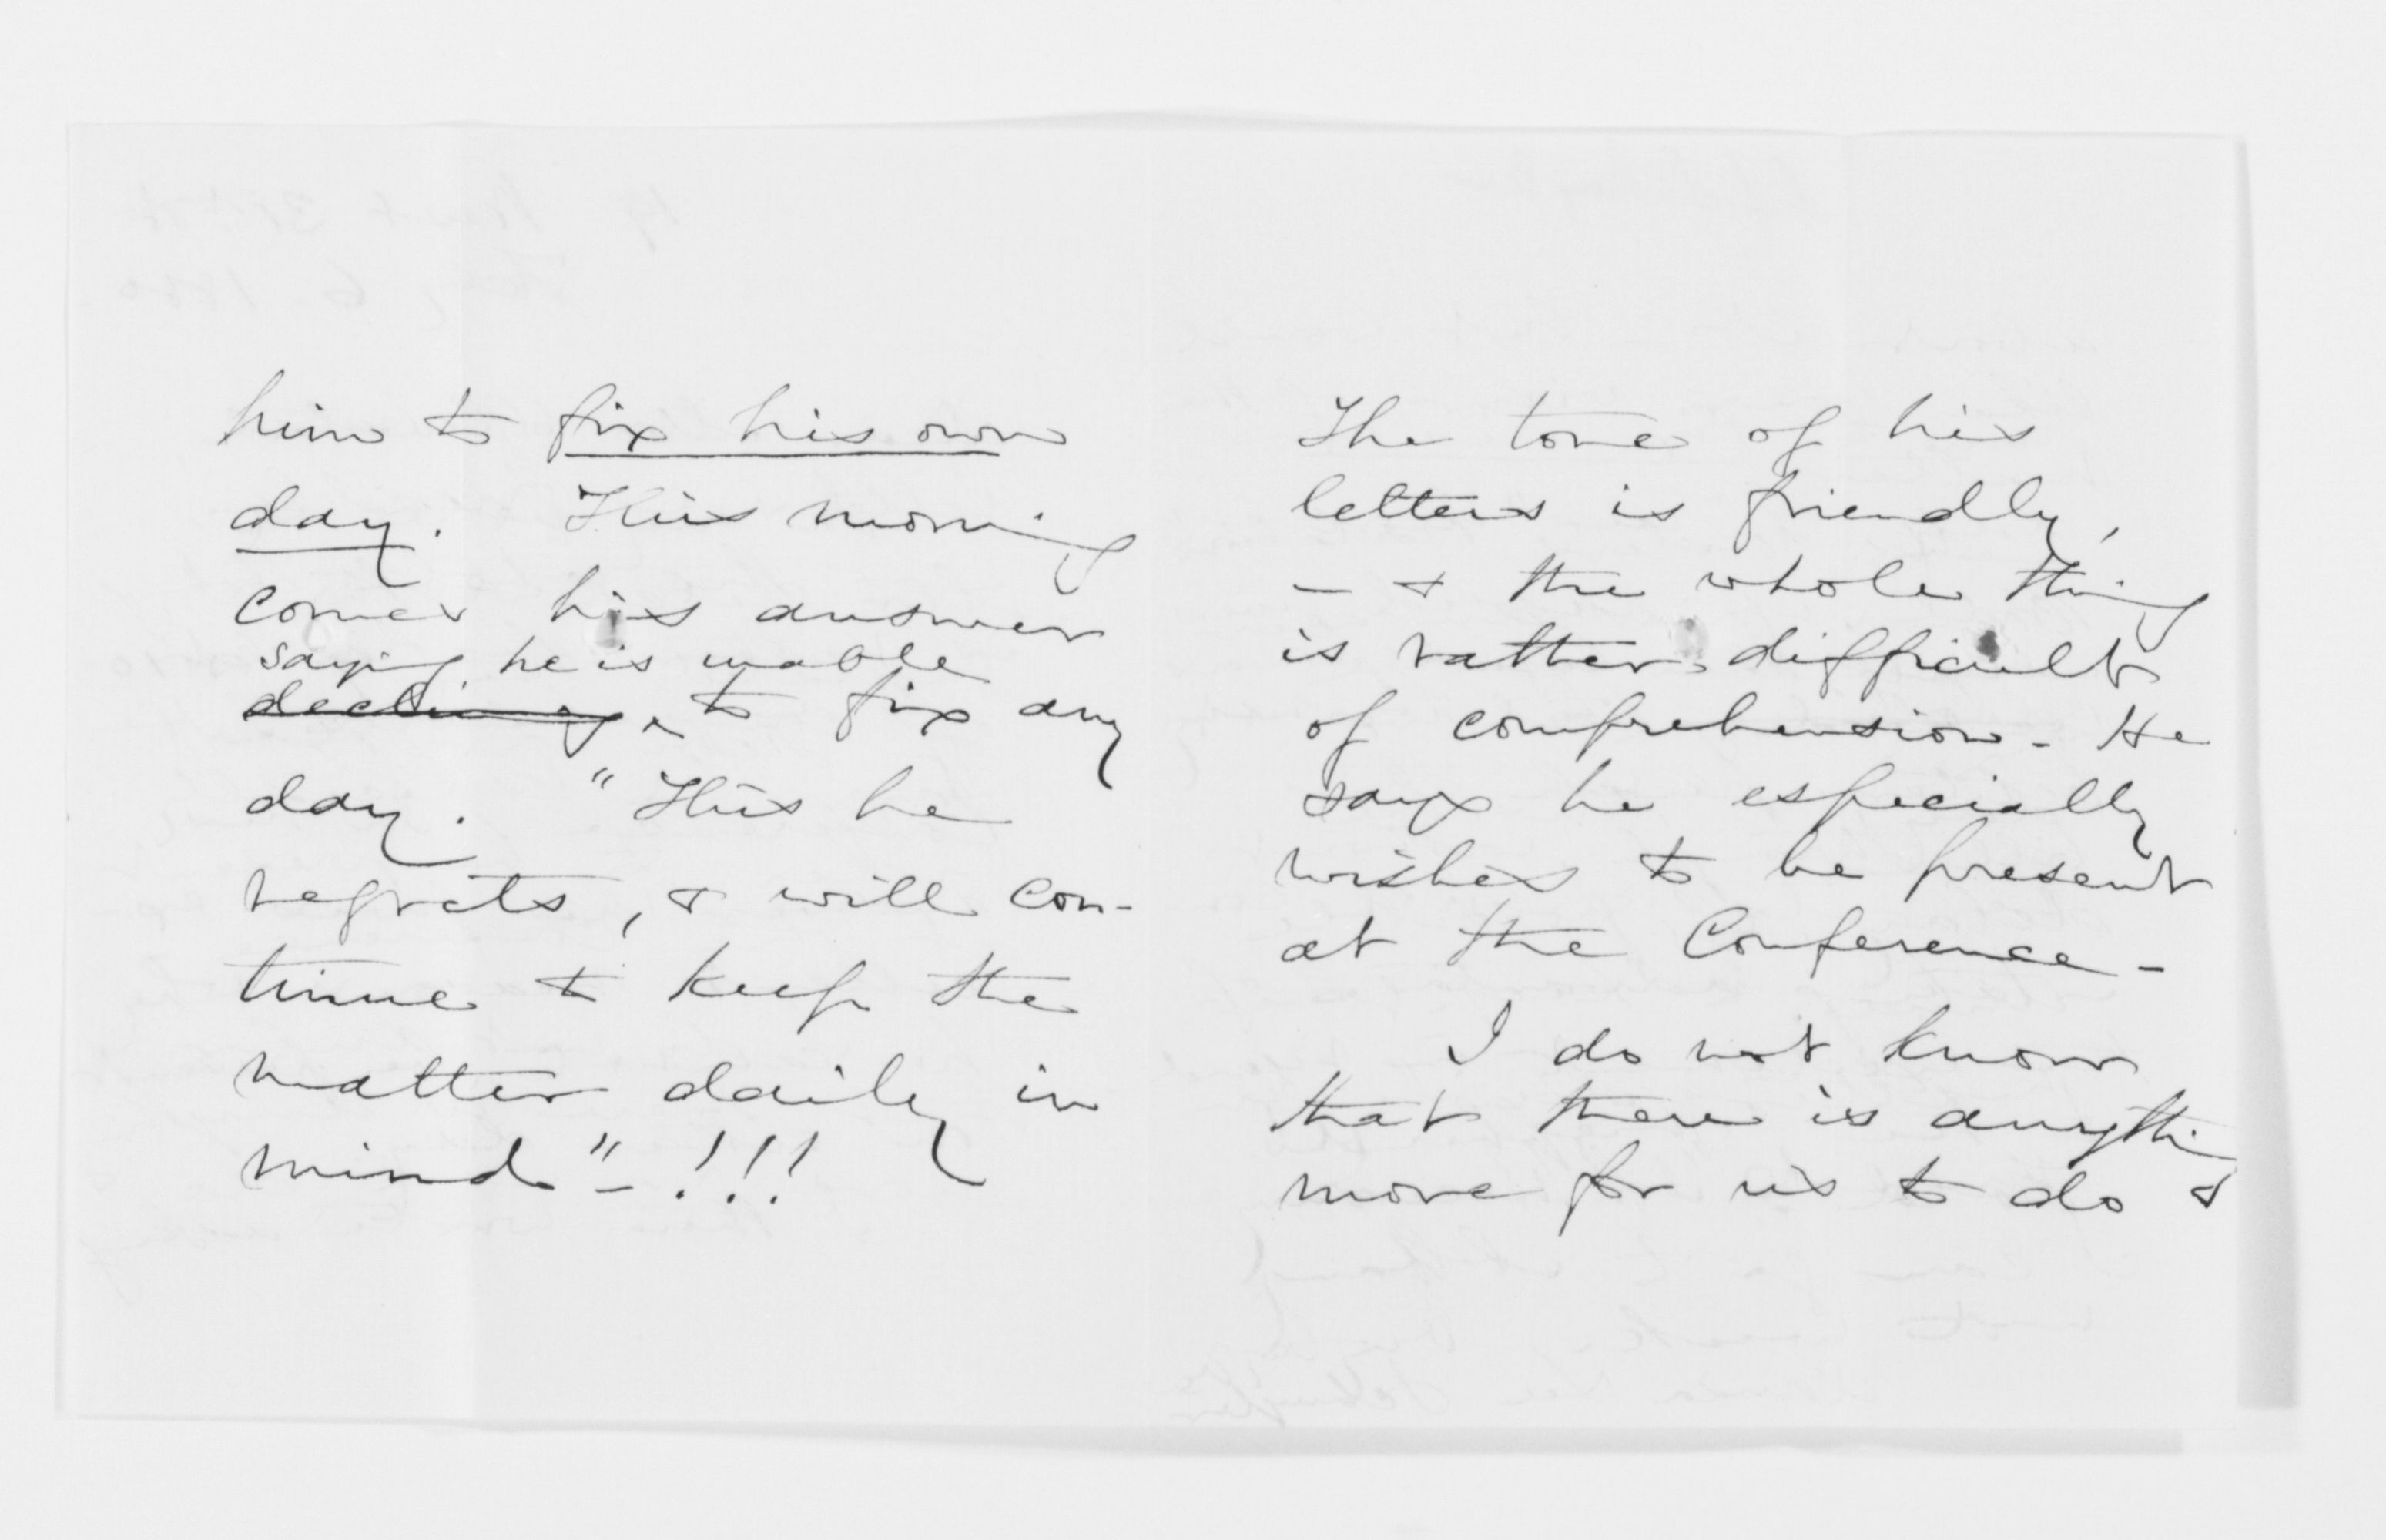 him to fix his own
day. This morning
comes his answer
saying he is unable
declining ^ to fix any
day. "This he
regrets, & will con-
tinue to keep the
matter daily in
mind" - !!!
The tone of his
letters is friendly,
- & the whole thing
is rather difficult
of comprehension - He
says he especially
wishes to be present
at the Conference -
I do not know
that there is anything
more for us to do &